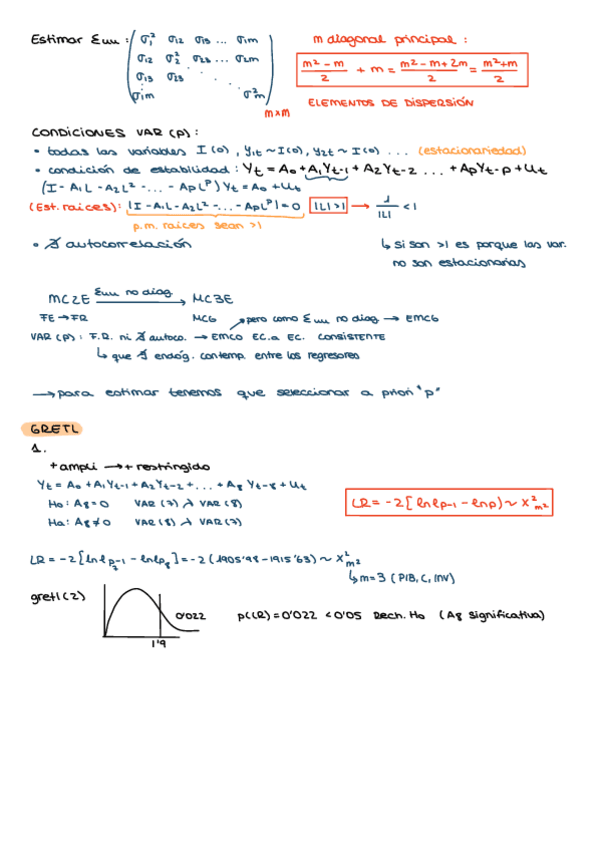 Estimar Σuu : ( σ₁² σ₁₂ σ₁₃ ... σ₁m
σ₁₂ σ₂² σ₂₃ ... σ₂m
σ₁₃ σ₂₃
σ₁m σ²m ) m×m
m diagonal principal :
(m² - m)/2 + m = (m² - m + 2m)/2 = (m² + m)/2
ELEMENTOS DE DISPERSIÓN
CONDICIONES VAR (p) :
• todas las variables I(0) , Y₁t ~ I(0) , Y₂t ~ I(0) ... (estacionariedad)
• condición de estabilidad : Yt = A₀ + A₁Yt-1 + A₂Yt-2 ... + ApYt-p + Ut
(I - A₁L - A₂L² - ... - ApLᵖ) Yt = A₀ + Ut
(Est. raíces) : |I - A₁L - A₂L² - ... - ApLᵖ| = 0 |L| > 1 → 1/|L| < 1
p.m. raíces sean > 1
• ∄ autocorrelación
↳ si son > 1 es porque las var.
no son estacionarias
MC2E Σuu no diag → MC3E
FE → FR MCG ↗ pero como Σuu no diag → EMCG
VAR (p) : F.R. ni ∄ autoco. → EMCO EC. a EC. CONSISTENTE
↳ que ∄ endóg. contemp. entre los regresores
→ para estimar tenemos que seleccionar a priori "p"
GRETL
1.
+ ampli → + restringido
Yt = A₀ + A₁Yt-1 + A₂Yt-2 + ... + A₈Yt-8 + Ut
H₀ : A₈ = 0 VAR (7) > VAR (8)
Ha : A₈ ≠ 0 VAR (8) > VAR (7)
LR = -2 [ lnlp-1 - lnlp ] ~ X²m²
LR = -2 [ lnlp-1 - lnlp₈ ] = -2 (1905'98 - 1915'63) ~ X²m²
7
↳ m = 3 (PIB, C, INV)
gretl (2)
0'022
1'9
p(LR) = 0'022 < 0'05 Rech. H₀ (A₈ significativa)